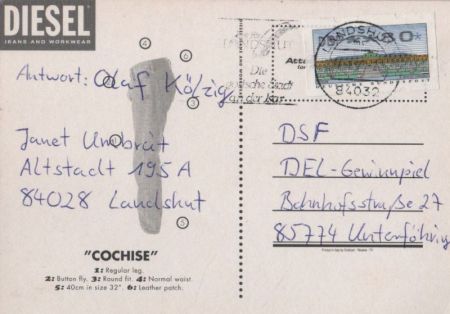 DIESEL
JEANS AND WORKWEAR
Antwort: Olaf Kölzig
Janet Umbreit
Altstadt 195 A
84028 Landshut
4
5
"COCHISE"
1: Regular leg.
2: Button fly. 3: Round fit. 4: Normal waist.
5: 40cm in size 32". 6: Leather patch.
LANDSHUT
84032
Die
gotische Stadt
an der Isar
DSF
DEL-Gewinnpiel
Bahnhofsstraße 27
85774 Unterföhring